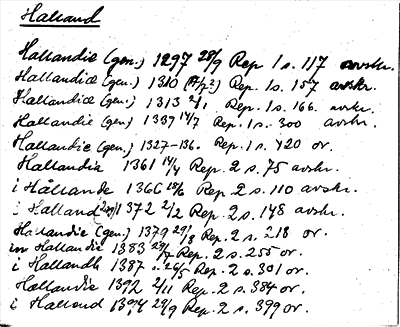 Halland
Hallandie (gen.) 1297 28/9 Rep. 1 s. 117 avskr.
Hallandiæ (gen.) 1310 Rep. 1 s. 157 avskr.
Hallandiæ (gen.) 1313 2/1 Rep. 1 s. 166. avskr.
Hallandie (gen.) 1339 14/7 Rep. 1 s. 300 avskr.
Hallandie (gen.) 1327-136. Rep. 1 s. 420 or.
Hallandia 1361 14/4 Rep. 2 s. 75 avskr.
i Hallande 1366 Rep. 2 s. 110 avskr.
i Halland 1372 2/2 Rep. 2 s. 148 avskr.
Hallandie (gen.) 1379 29/8 Rep. 2 s. 218 or.
in Hallandie 1383 29/7 Rep. 2 s. 255 or.
i Hallandh 1387 26/5 Rep. 2 s. 301 or.
Hallandie 1392 2/11 Rep. 2 s. 384 or.
i Halland 1394 29/9 Rep. 2 s. 399 or.